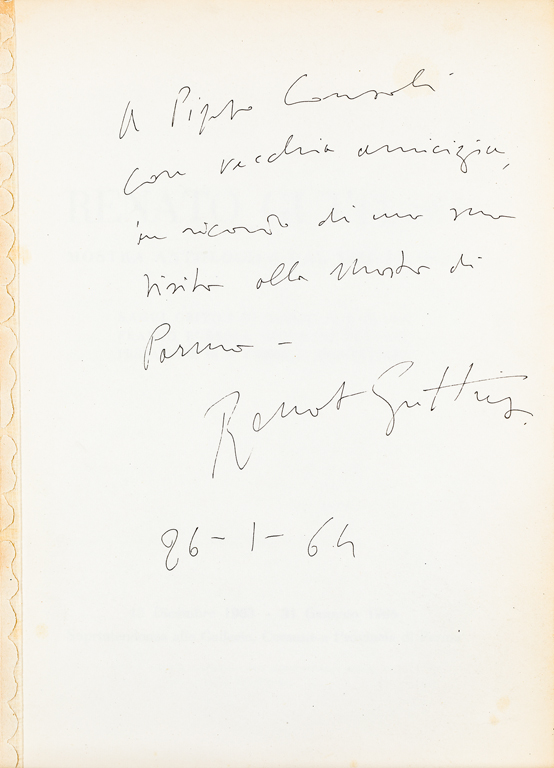 A Pippo Consoli
con vecchia amicizia,
in ricordo di una sua
visita alla mostra di
Parma -
Renato Guttuso.
26-1-64
RENATO